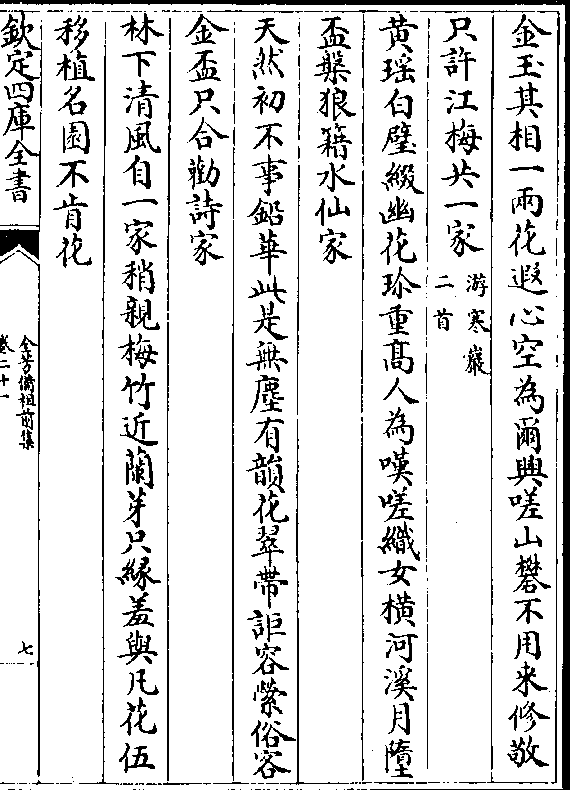 金玉其相一兩花遐心空為爾興嗟山礬不用来修敬
只許江梅共一家游寒巖二首
黄瑶白璧綴幽花珍重髙人為嘆嗟織女横河溪月墮
盃槃狼籍水仙家
天然初不事鉛華此是無塵有韻花翠帶詎容縈俗客
金盃只合勸詩家
林下清風自一家稍親梅竹近蘭芽只縁羞與凡花伍
移植名園不肯花
欽定四庫全書
全芳備祖前集
卷二十一
七